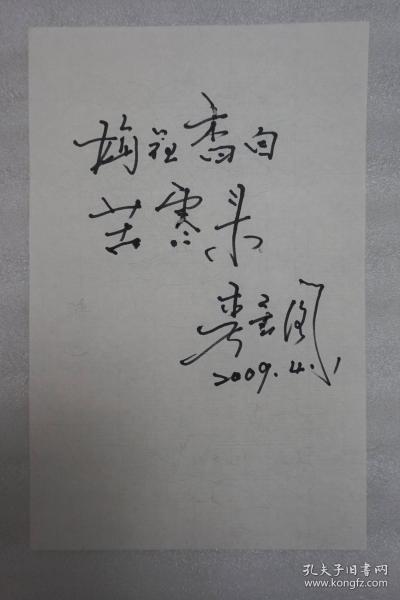 梅花香自
苦寒来
2009.4.1
孔夫子旧书网
www.kongfz.com